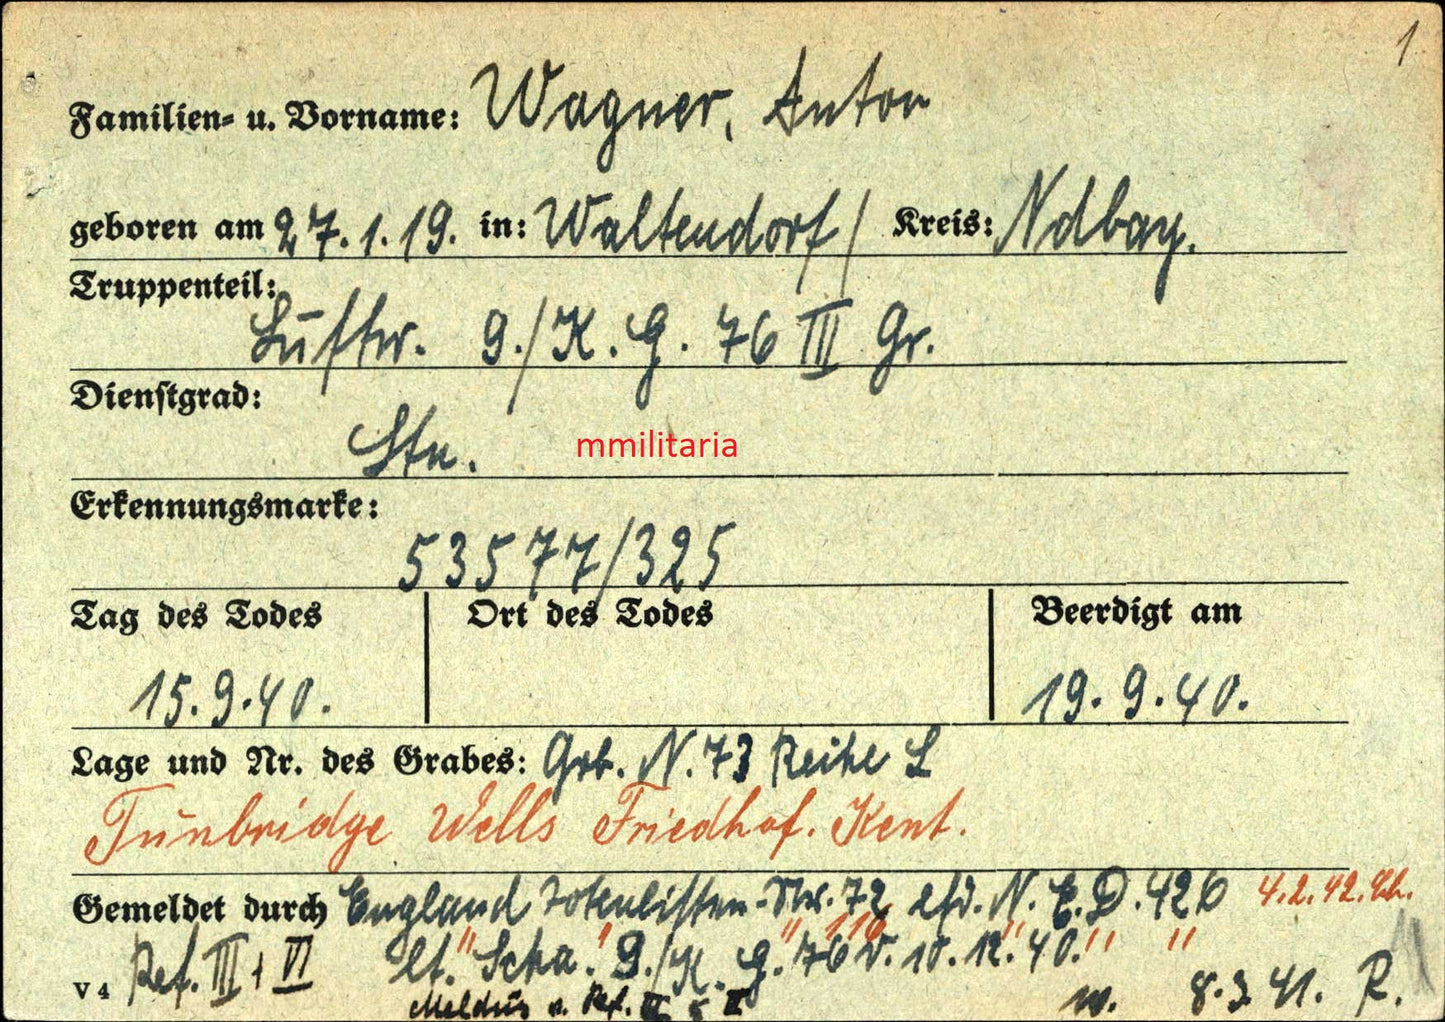 1
Familien- u. Vorname: Wagner, Anton
geboren am 27.1.19. in: Waltendorf / Kreis: Ndbay.
Truppenteil:
Luftw. 9./K.G. 76 III Gr.
Dienstgrad:
mmilitaria
Erkennungsmarke:
53577/325
Tag des Todes Ort des Todes Beerdigt am
15.9.40. 19.9.40.
Lage und Nr. des Grabes: Grb. N. 73 Reihe L
Tunbridge Wells Friedhof. Kent.
Gemeldet durch England Totenlisten-Nr. 72 lfd. N. E.D. 426 4.2.42.
" " " 116 " " "
Ref. III + VI lt. 9./K.G. 76 v. 10.12.40.
V 4 w. 8.3.41. R.